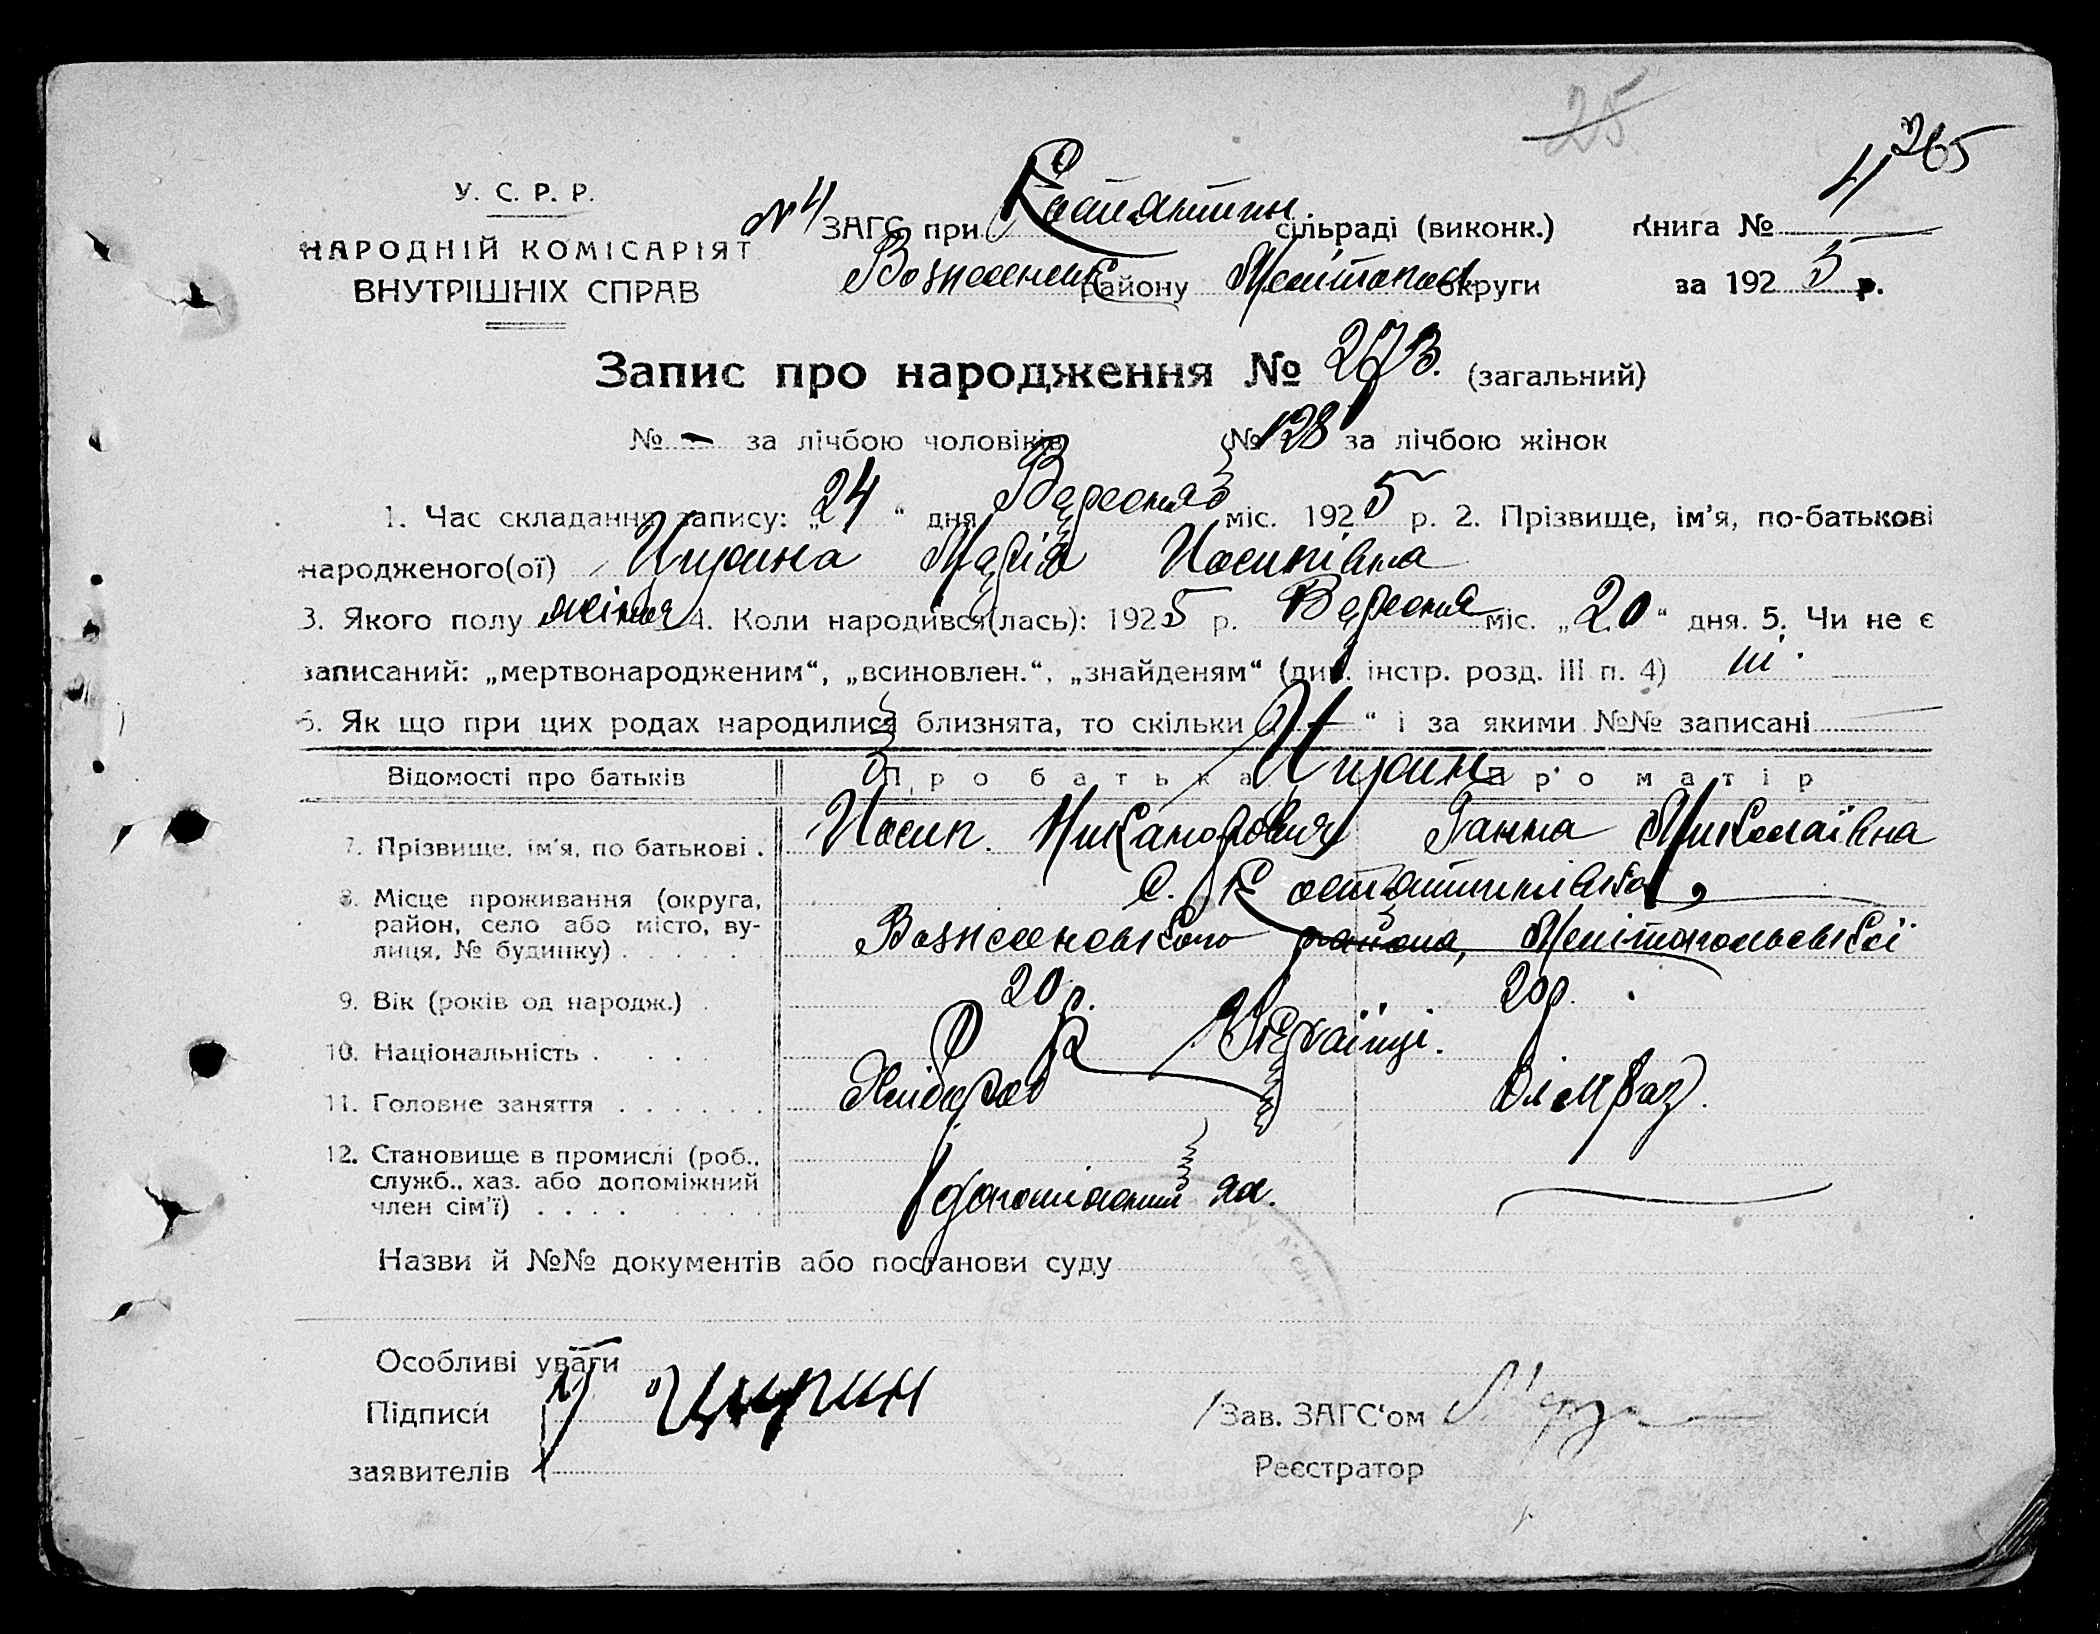 25
265
У. С. Р. Р.
НАРОДНІЙ КОМІСАРІЯТ
ВНУТРІШНІХ СПРАВ
№ 4 ЗАГС при Костянтин. сільраді (виконк.) Книга № 4
Вознесенськ району Мелітопол округи за 1925 р.
Запис про народження № 273. (загальний)
№ - за лічбою чоловіків № 128 за лічбою жінок
1. Час складання запису: „24“ дня Вересня міс. 1925 р. 2. Прізвище, ім'я, по-батькові
народженого(ої) Цирина Марія Йосипівна
3. Якого полу жіноч 4. Коли народився(лась): 1925 р. Вересня міс. „20“ дня. 5. Чи не є
записаний: „мертвонародженим“, „всиновлен.“, „знайденям“ (див. інстр. розд. III п. 4) ні.
6. Як що при цих родах народилися близнята, то скільки „ — “ і за якими №№ записані —
Відомості про батьків Про батька Про матір
Цирин
7. Прізвище, ім'я, по батькові . Йосип Никанорович Ганна Миколаївна
8. Місце проживання (округа, район, село або місто, вулиця, № будинку) . . . . . . с. Костянтинівка,
Вознесеновського района, Мелітопольської
9. Вік (років од народж.) . 20 р. 20 р.
10. Національність . . . . Українці.
11. Головне заняття . . . . . . Хлібороб
12. Становище в промислі (роб., служб., хаз. або допоміжний член сім'ї) . . . . —
Назви й №№ документів або постанови суду
Особливі уваги
Підписи Цирин Зав. ЗАГС'ом
заявителів Реєстратор